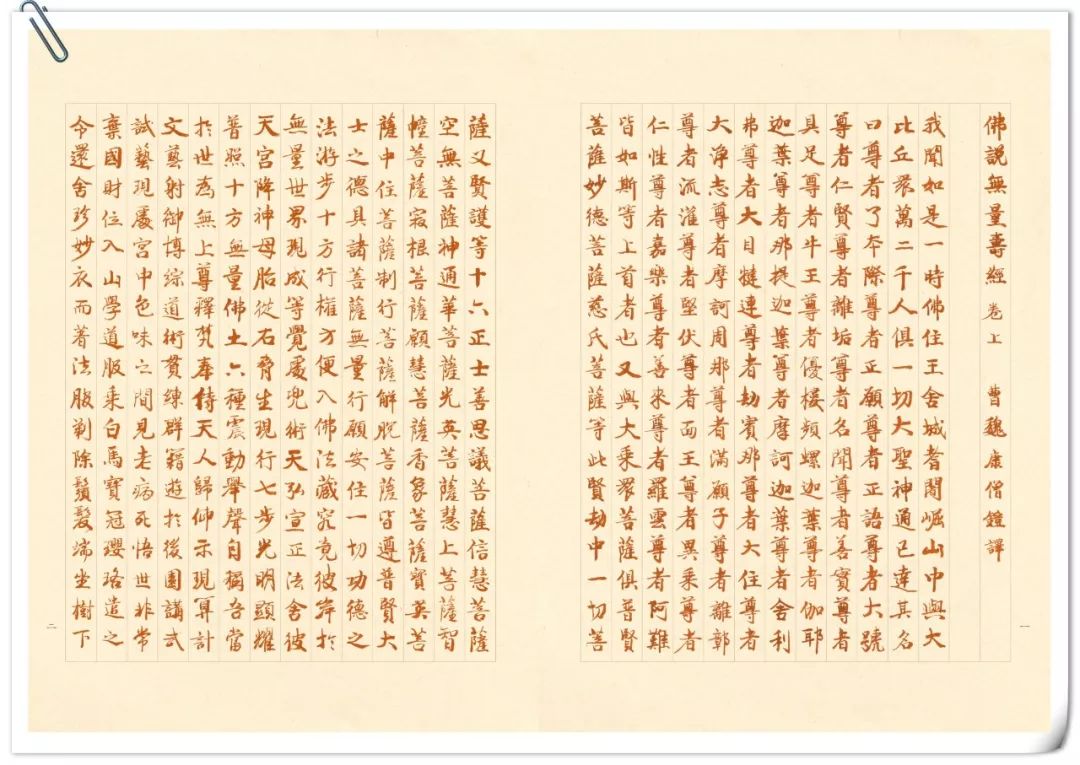 佛說無量壽經 卷上 曹魏康僧鎧譯
我聞如是一時佛住王舍城耆闍崛山中與大
比丘眾萬二千人俱一切大聖神通已達其名
曰尊者了本際尊者正願尊者正語尊者大號
尊者仁賢尊者離垢尊者名聞尊者善實尊者
具足尊者牛王尊者優樓頻螺迦葉尊者伽耶
迦葉尊者那提迦葉尊者摩訶迦葉尊者舍利
弗尊者大目犍連尊者劫賓那尊者大住尊者
大淨志尊者摩訶周那尊者滿願子尊者離鄣
尊者流灌尊者堅伏尊者面王尊者異乘尊者
仁性尊者嘉樂尊者善來尊者羅雲尊者阿難
皆如斯等上首者也又與大乘眾菩薩俱普賢
菩薩妙德菩薩慈氏菩薩等此賢劫中一切菩
一
薩又賢護等十六正士善思議菩薩信慧菩薩
空無菩薩神通華菩薩光英菩薩慧上菩薩智
幢菩薩寂根菩薩願慧菩薩香象菩薩寶英菩
薩中住菩薩制行菩薩解脫菩薩皆遵普賢大
士之德具諸菩薩無量行願安住一切功德之
法游步十方行權方便入佛法藏究竟彼岸於
無量世界現成等覺處兜術天弘宣正法捨彼
天宮降神母胎從右脅生現行七步光明顯耀
普照十方無量佛土六種震動舉聲自稱吾當
於世為無上尊釋梵奉侍天人歸仰示現算計
文藝射御博綜道術貫練群籍遊於後園講武
試藝現處宮中色味之間見老病死悟世非常
棄國財位入山學道服乘白馬寶冠瓔珞遣之
令還舍珍妙衣而著法服剃除鬚髮端坐樹下
二